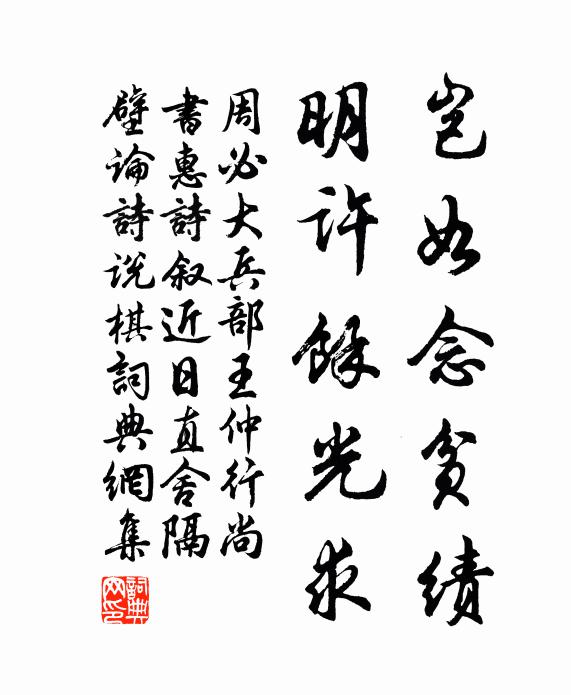 岂如念贫绩
明许馀光求
周必大兵部王仲行尚
書惠詩叙近日直舍隔
壁論詩说棋詞典網集
詞典网印